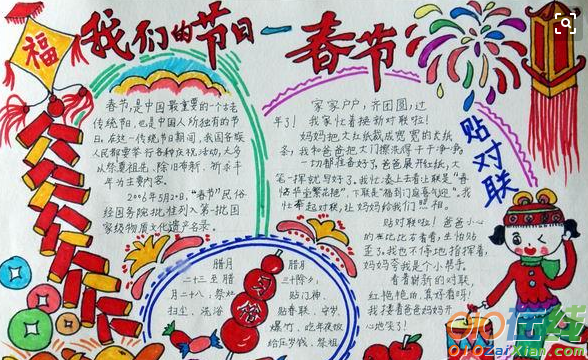 福
我们的节日—春节
春节,是中国最重要的一个古老
传统节日,也是中国人所独有的节
日。在这一传统节日期间,我国各族
人民都要举行各种庆祝活动,大多
以祭奠祖先、除旧布新、祈求丰
年为主要内容。
2006年5月20日,“春节”民俗
经国务院批准列入第一批国
家级物质文化遗产名录。
家家户户,齐团圆,过
年了!我家忙着换新对联啦!
妈妈把大红纸裁成宽宽的长纸
我和爸爸把大门擦洗得干干净净。
一切都准备好了,爸爸展开红纸,大
笔一挥就写好了。我忙凑上去看让联是“春
临节近繁花艳”,下联是“福到门庭喜气迎”。我
忙举起对联,让妈妈给我们照相。
贴对联
贴对联啦!爸爸小心
比比看看,生怕贴
歪了,我也不停地指挥着,
妈妈夸我是个小帮手。
看着崭新的对联,
红艳艳的,真好看呀!
我搂着爸爸妈妈开
心地笑了!
腊月
二十三至腊
月二十八、祭灶
扫尘、洗浴
腊月
三十除夕:
贴门神、
贴春联、守岁、
爆竹、吃年夜饭
给压岁钱、祭祖
OtoZaiXian.com